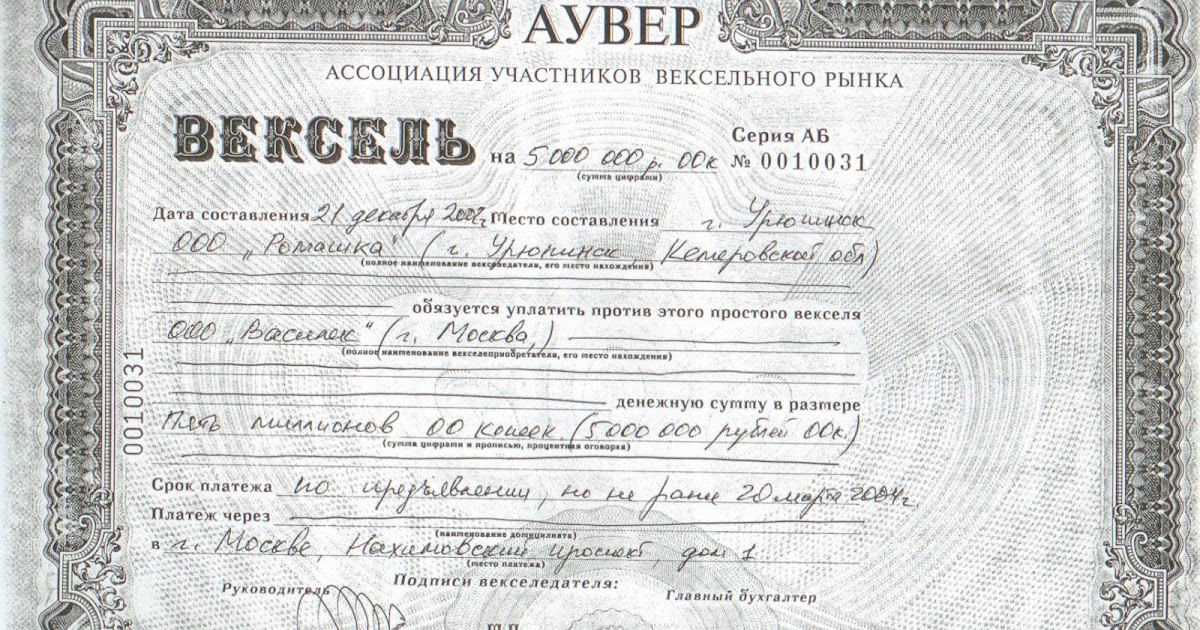 АУВЕР
АССОЦИАЦИЯ УЧАСТНИКОВ ВЕКСЕЛЬНОГО РЫНКА
ВЕКСЕЛЬ на 5 000 000 р. 00 к
Серия АБ
№ 0010031
(сумма цифрами)
Дата составления 21 декабря 2002 г. Место составления г. Урюпинск
ООО „Ромашка" (г. Урюпинск, Кемеровской обл)
(полное наименование векселедателя, его место нахождения)
обязуется уплатить против этого простого векселя
ООО „Василек" (г. Москва,)
(полное наименование векселеприобретателя, его место нахождения)
0010031
денежную сумму в размере
Пять миллионов 00 копеек (5000 000 рублей 00к.)
(сумма цифрами и прописью, процентная оговорка)
Срок платежа по предъявлении, но не ранее 20 марта 2004 г.
Платеж через
(наименование домицилиата)
в г. Москве, Нахимовский проспект, дом 1
(место платежа)
Подписи векселедателя:
Руководитель
Главный бухгалтер